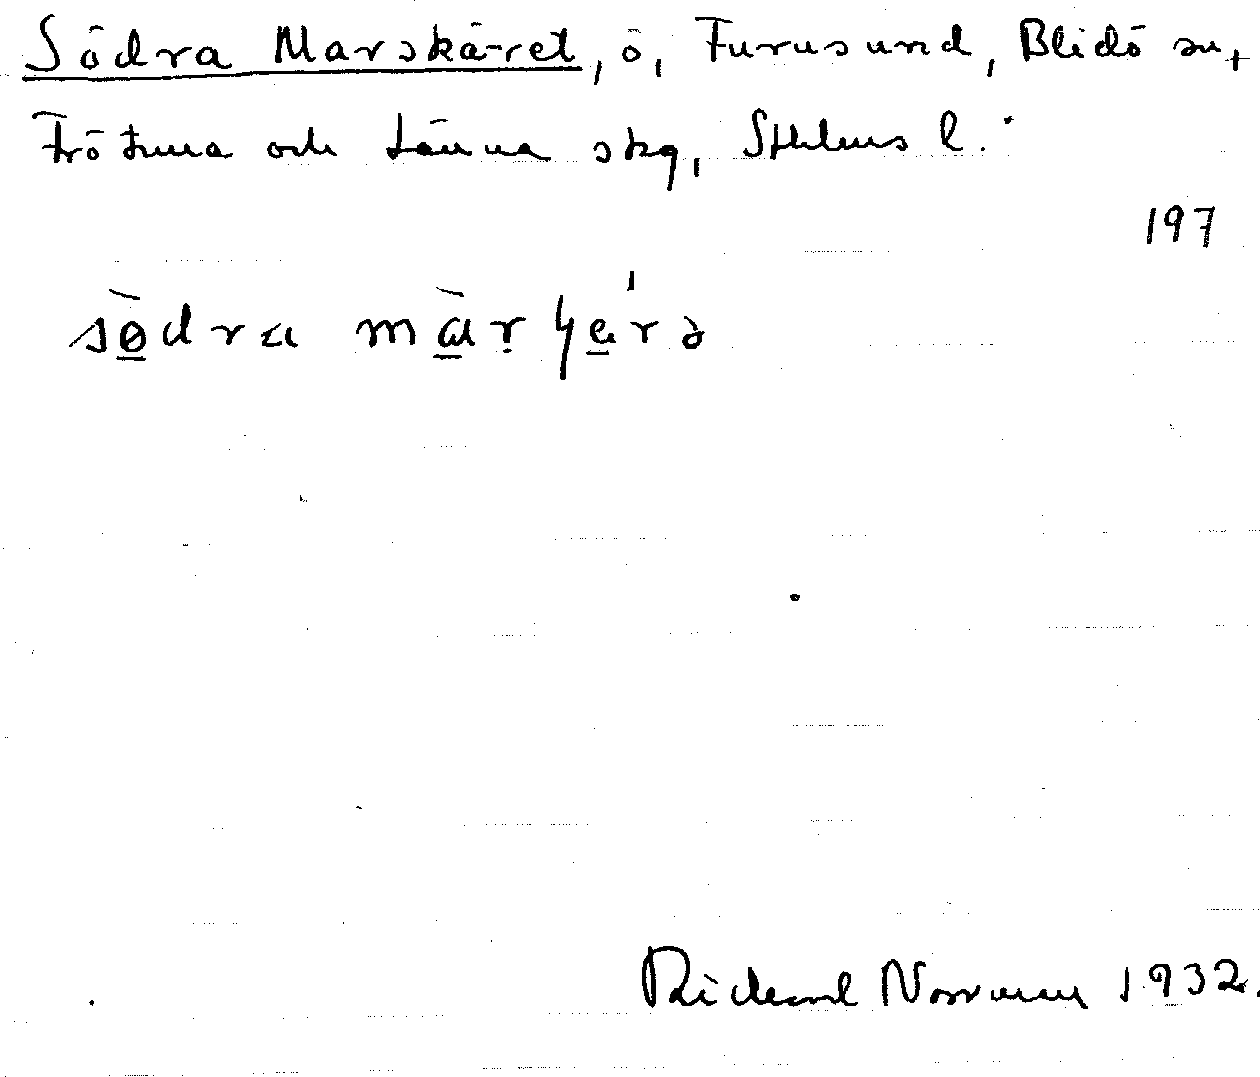 Södra Marskäret, ö, Furusund, Blidö sn,
Frötuna och Länna skg, Sthlms l.
197
sø̀dra màrɧæ̍rə
Rickard Norrman 1932.